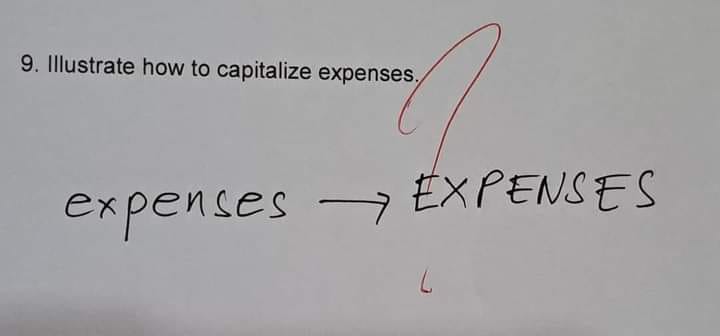 9. Illustrate how to capitalize expenses.
expenses → EXPENSES